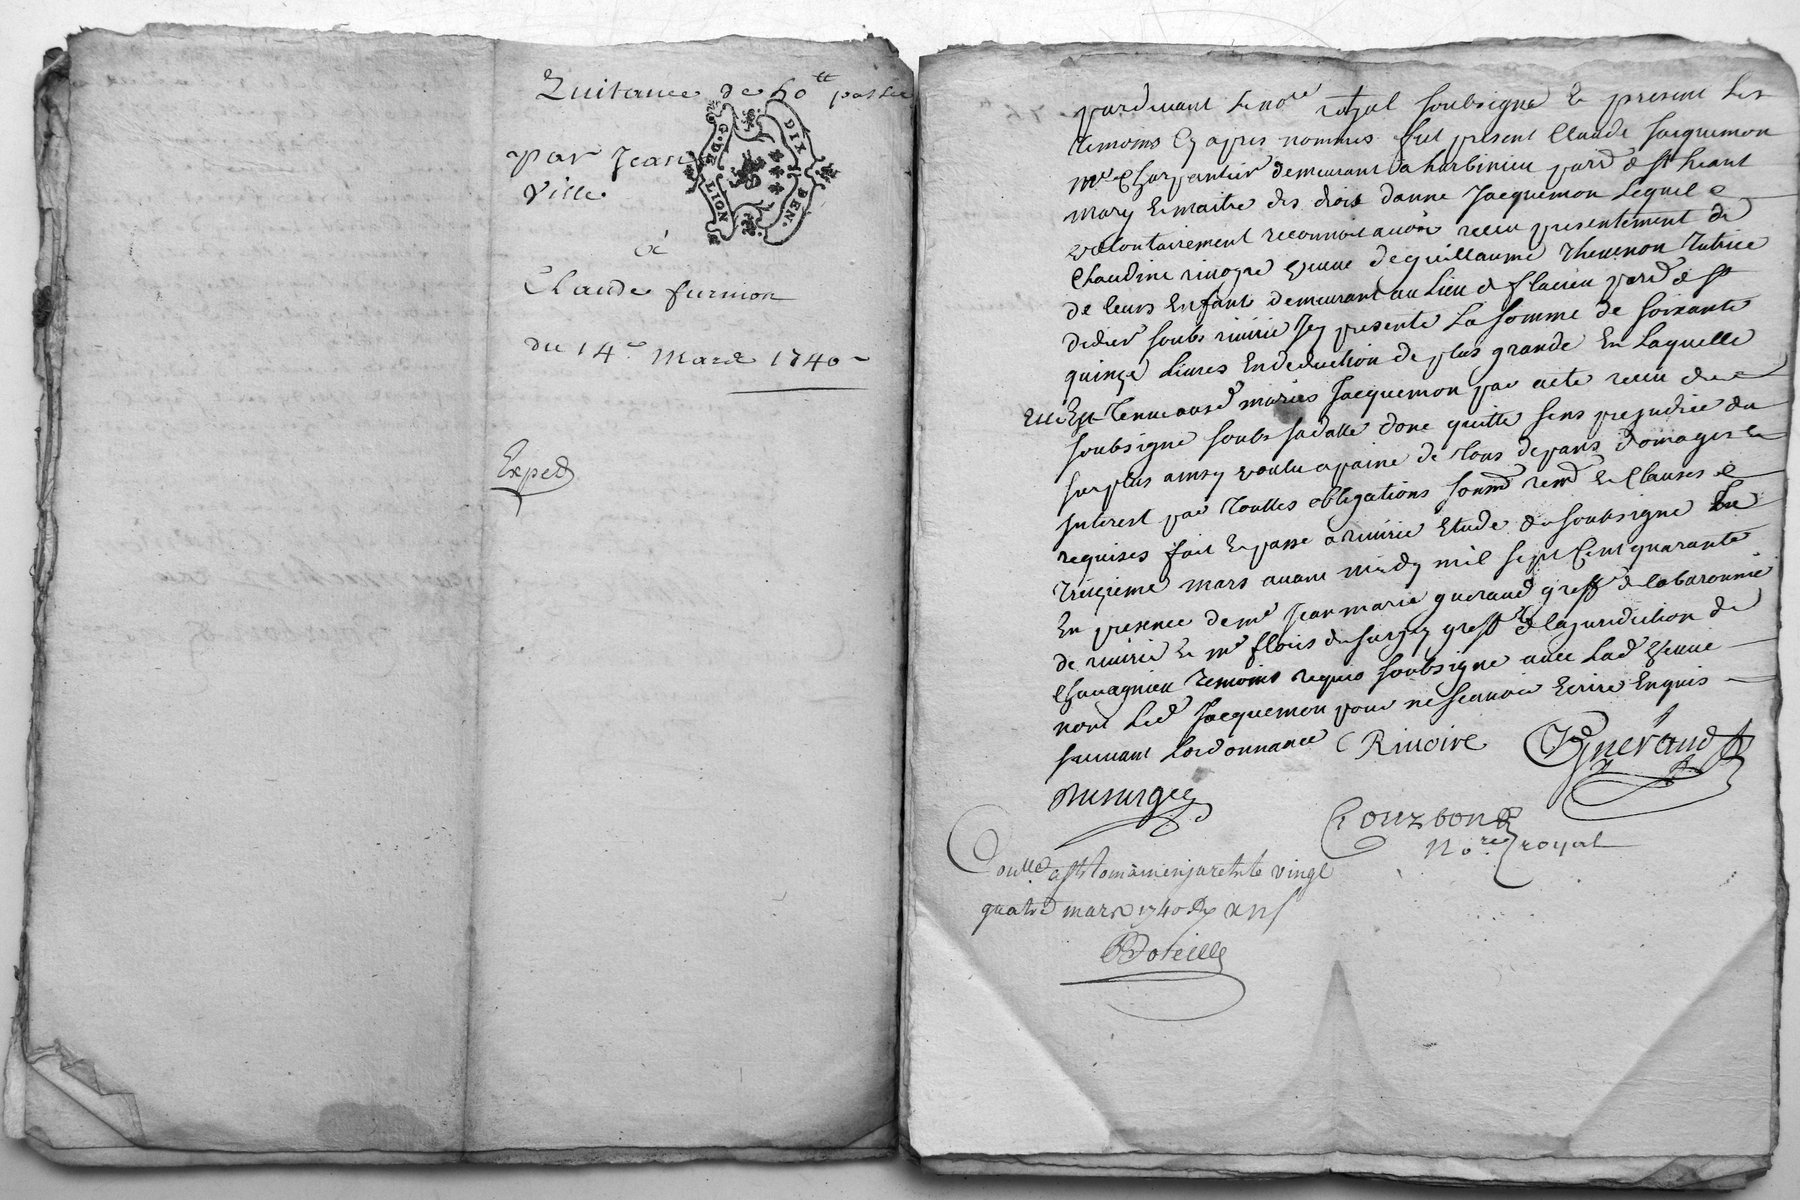 Quitance de 60 tt passée
par Jean
Ville
à
Claude furmion
du 14e Mars 1740
Exped
G. DE LION
DIX DEN.
pardevant le nore royal soubsigne & present les
temoins cy apres nommés fut present Claude Jacquemon
me Charpentier demeurant a harbinieu parr de st heant
mary & maitre des drois danne Jacquemon lequel
volontairement reconnoit avoir receu presentement de
Claudine rivoyre veuve de guillaume thevenon tutrice
de leurs enfants demeurant au lieu de flacieu parr de st
didier soubs rivirie Icy presente La somme de soixante
quinze Livres En deduction de plus grande En Laquelle
elle Est tenue ausd mariés Jacquemon par acte receu du
soubsigne soubs sa datte dont quitte sans prejudice du
surplus ainsy voulu a paine de tous depans domages &
interest par touttes obligations soumd remd & Clauses
requises fait & passé a rivirie Etude du soubsigne Le
treizieme mars avant midy mil sept Cent quarante
En presence de me Jean marie gueraud greff de la baronnie
de rivirie & me flois du surgey greff de la juridiction de
Chavagnieu temoins requis soubsigne avec lad veuve
non Led Jacquemon pour ne scavoir Ecrire Enquis
suivant Lordonnance Rivoire Gueraud
Dusurgey
Courbon
nore royal
Coullé a st romain en jaret le vingt
quatre mars 1740
Boteille